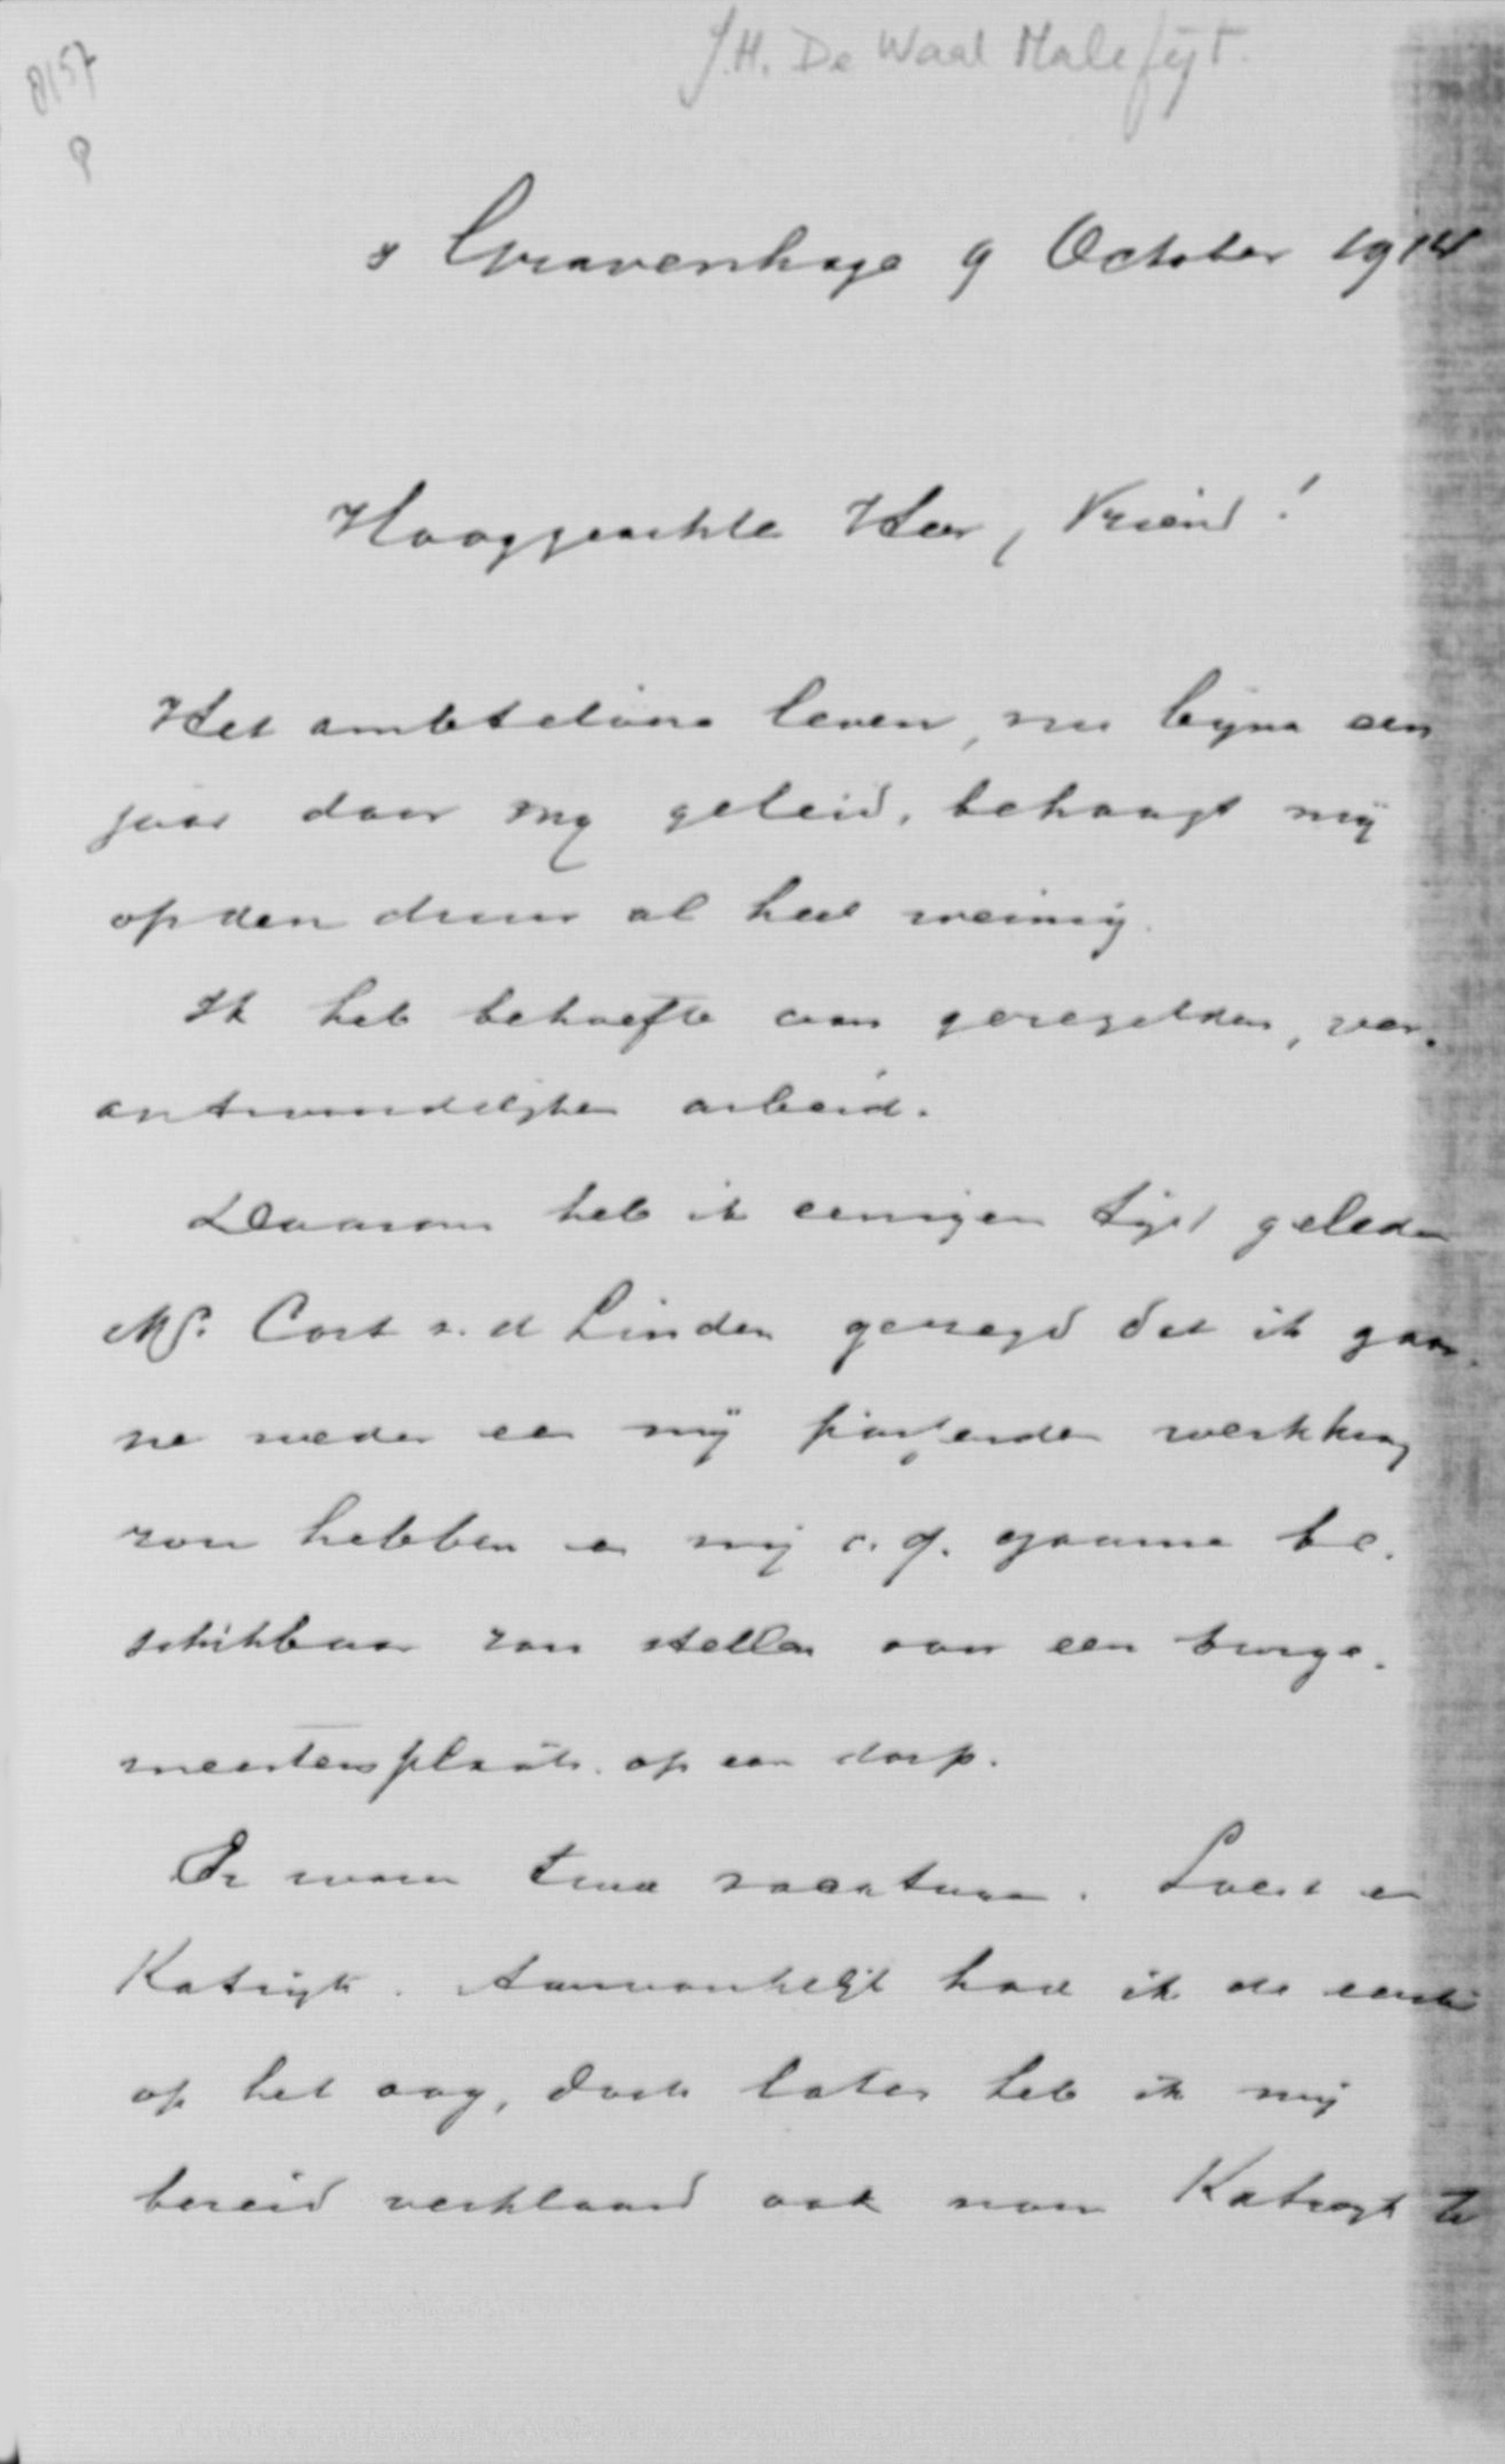 J.H. De Waal Malefijt.
8157
P
s Gravenhage 9 October 1914
Hooggeachte Heer, Vriend!
Het ambtelooze leven, nu bijna een
jaar door mij geleid, behaagt mij
op den duur al heel weinig.
Ik heb behoefte aan geregelden, ver-
antwoordelijken arbeid.
Daarom heb ik eenigen tijd geleden
Mr. Cort v. d Linden gezegd dat ik gaar-
ne weder een mij passenden werkkring
zou hebben en mij c.q. gaarne be-
schikbaar zou stellen voor een burge-
meestersplaats op een dorp.
Er waren twee vacatures. Soest en
Katwijk. Aanvankelijk had ik de eerste
op het oog, doch later heb ik mij
bereid verklaard ook naar Katwijk te